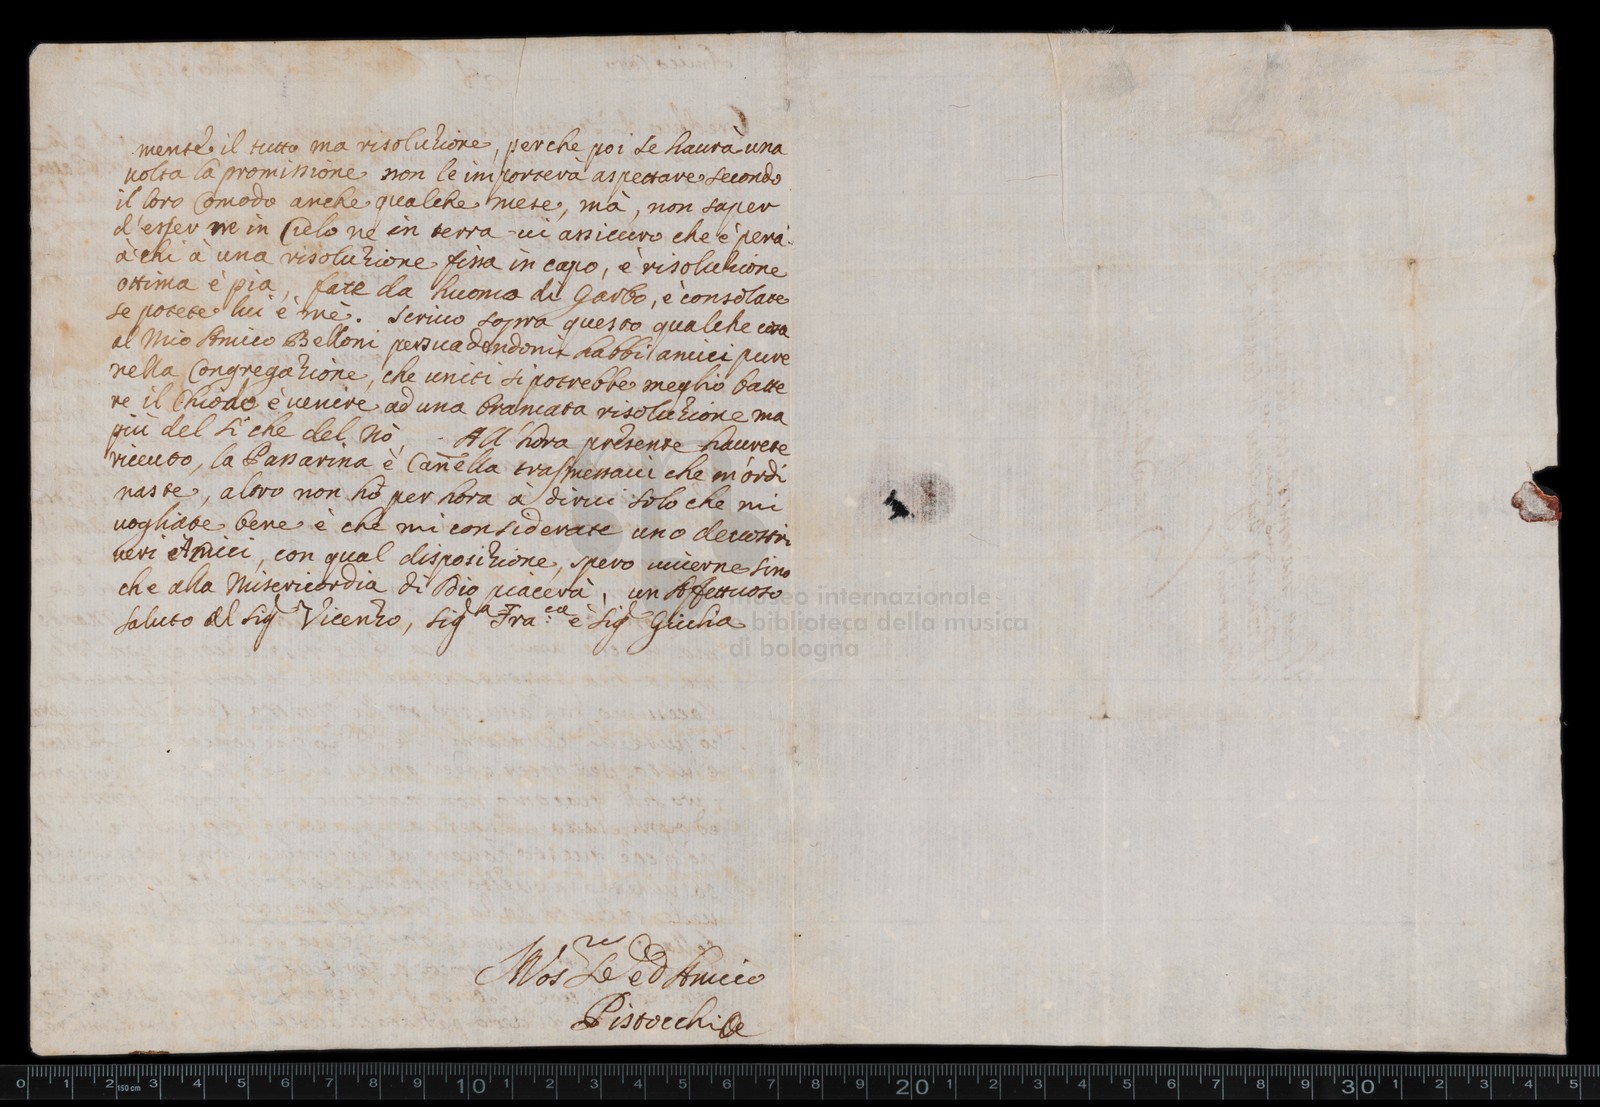 mente il tutto ma risoluzione, perche poi se haurà una
uolta la promissione non le importerà aspettare secondo
il loro Comodo anche qualche mese, mà, non saper
d'esser ne in Cielo ne in terra ui assicuro che è pena
à chi à una risoluzione fissa in capo, è risoluzione
ottima è pia, fate da huomo di Garbo, è consolate
se potete lui è mè. Scriuo sopra questo qualche cosa
al Mio Amico Belloni persuadendomi habbi amici pure
nella Congregazione, che uniti si potrebbe meglio batte
re il Chiodo è uenire ad una bramata risoluzione ma
più del Si che del Nò, - All'hora presente haurete
riceuto, la Passarina è Canella trasmessaui che m'ordi
naste, altro non hò per hora à dirui solo che mi
uogliate bene è che mi considerate uno de uostri
ueri Amici, con qual disposizione, spero uiuerne sino
che alla Misericordia di Dio piacerà, un Affettuoso
saluto al Sig.r Vicenzo, Sig.ra Fra.ca è Sig. Giulia
Vos.ro Se èd Amico
Pistocchi
museo internazionale
e biblioteca della musica
di bologna
0 1 2 3 4 5 6 7 8 9 10 1 2 3 4 5 6 7 8 9 20 1 2 3 4 5 6 7 8 9 30 1 2 3 4 5
150 cm